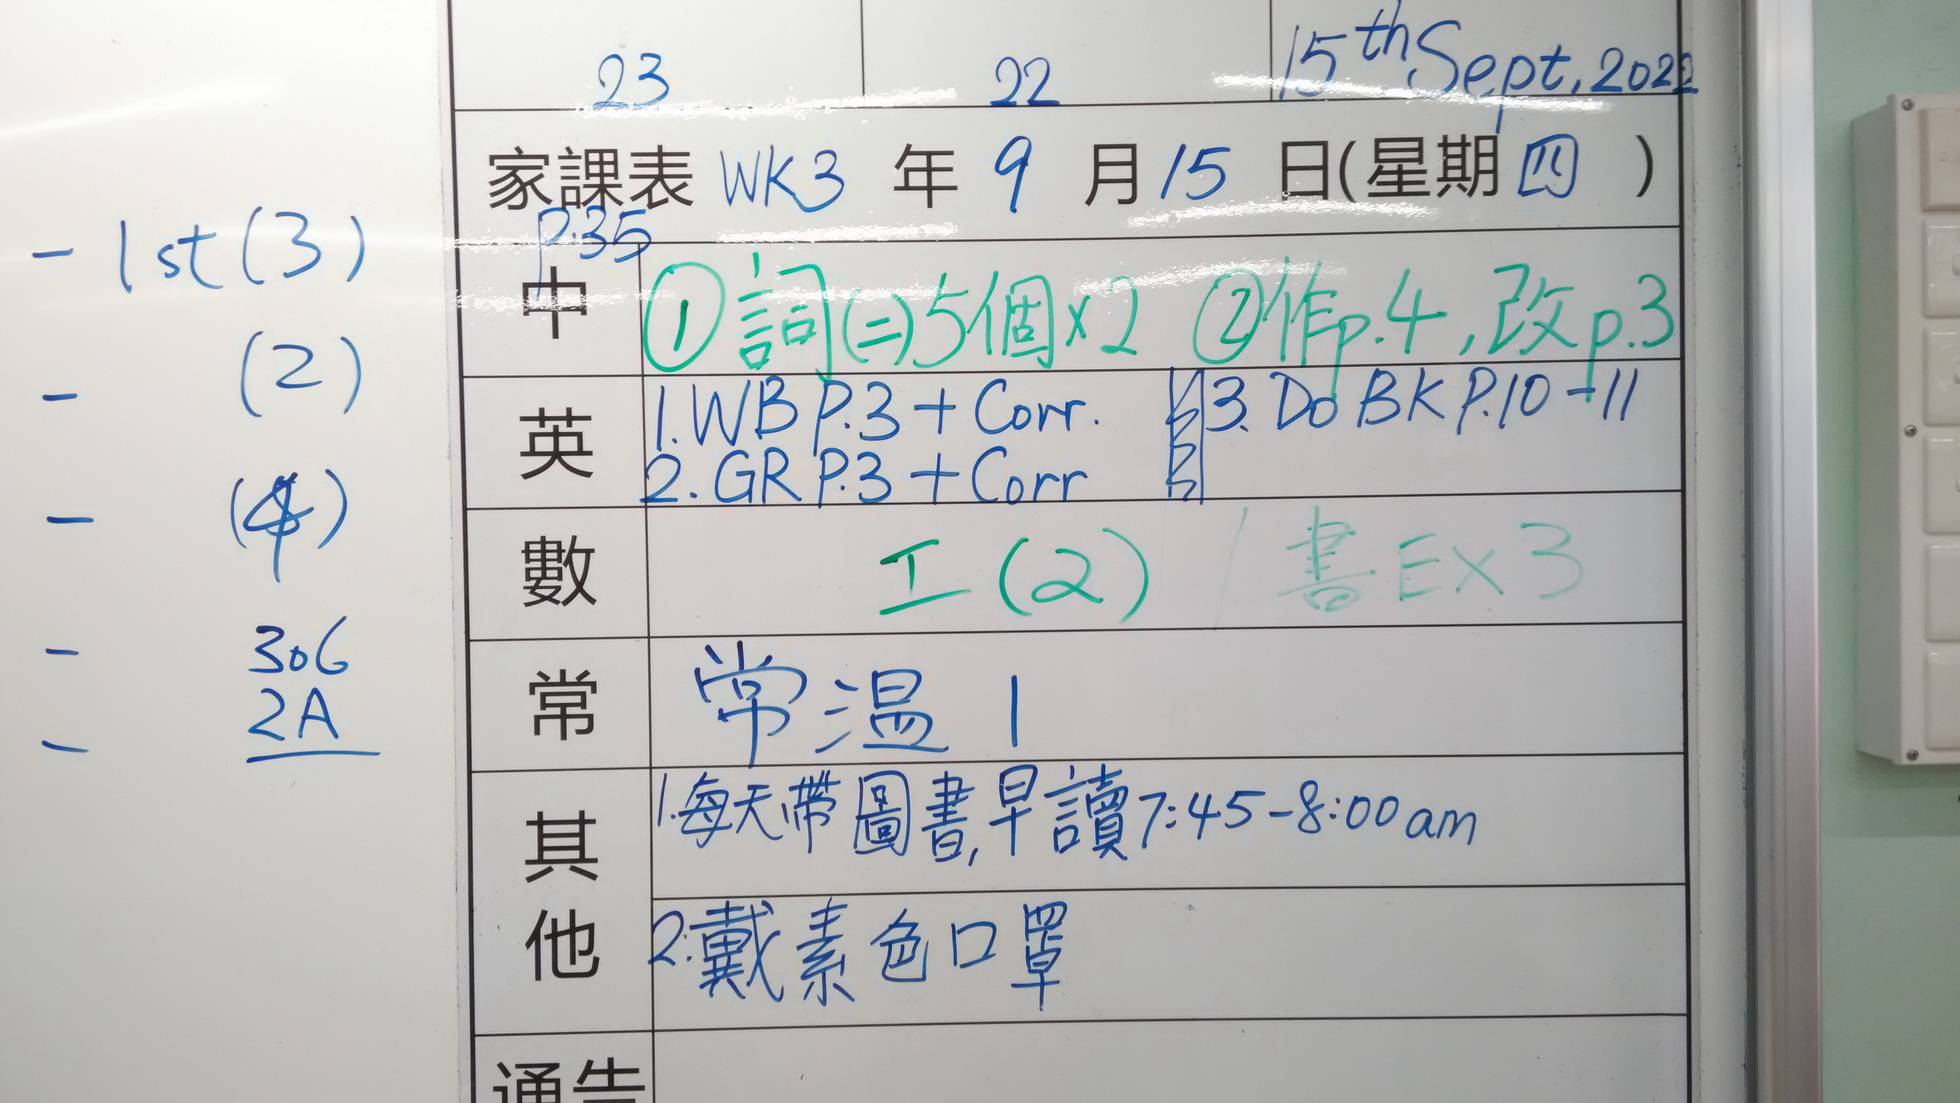 23 22 15th Sept, 2022
家課表 WK3 年 9 月 15 日(星期四)
p.35
中 ①詞(二)5個x2 ②作p.4,改p.3
英 1. WB P.3 + Corr. 3. Do BK P.10-11
2. GR P.3 + Corr
數 工(2) / 書 Ex 3
常 常溫 1
其他 1.每天帶圖書,早讀7:45-8:00am
2.戴素色口罩
通告
- 1st (3)
- (2)
- (4)
- 306
2A
-